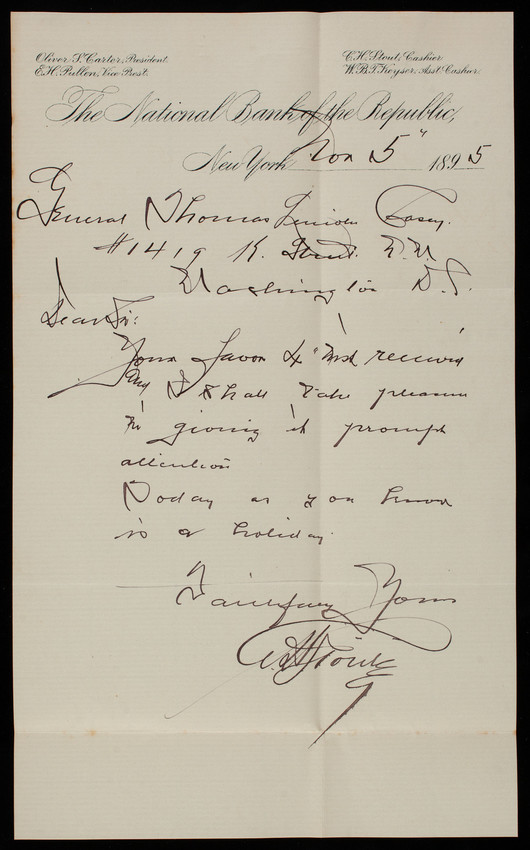 Oliver S. Carter, President.
E.H. Pullen, Vice Prest.
C.H. Stout, Cashier
W.B.T. Keyser, Asst Cashier.
The National Bank of the Republic,
New York Nov 5" 1895
General Thomas Lincoln Casey.
#1419 K. Street. N.W.
Washington D.C.
Dear Sir:
Your favor 4" inst received
and I shall take pleasure
in giving it prompt
attention
Today as you know
is a holiday.
Faithfully Yours
C.H. Stout